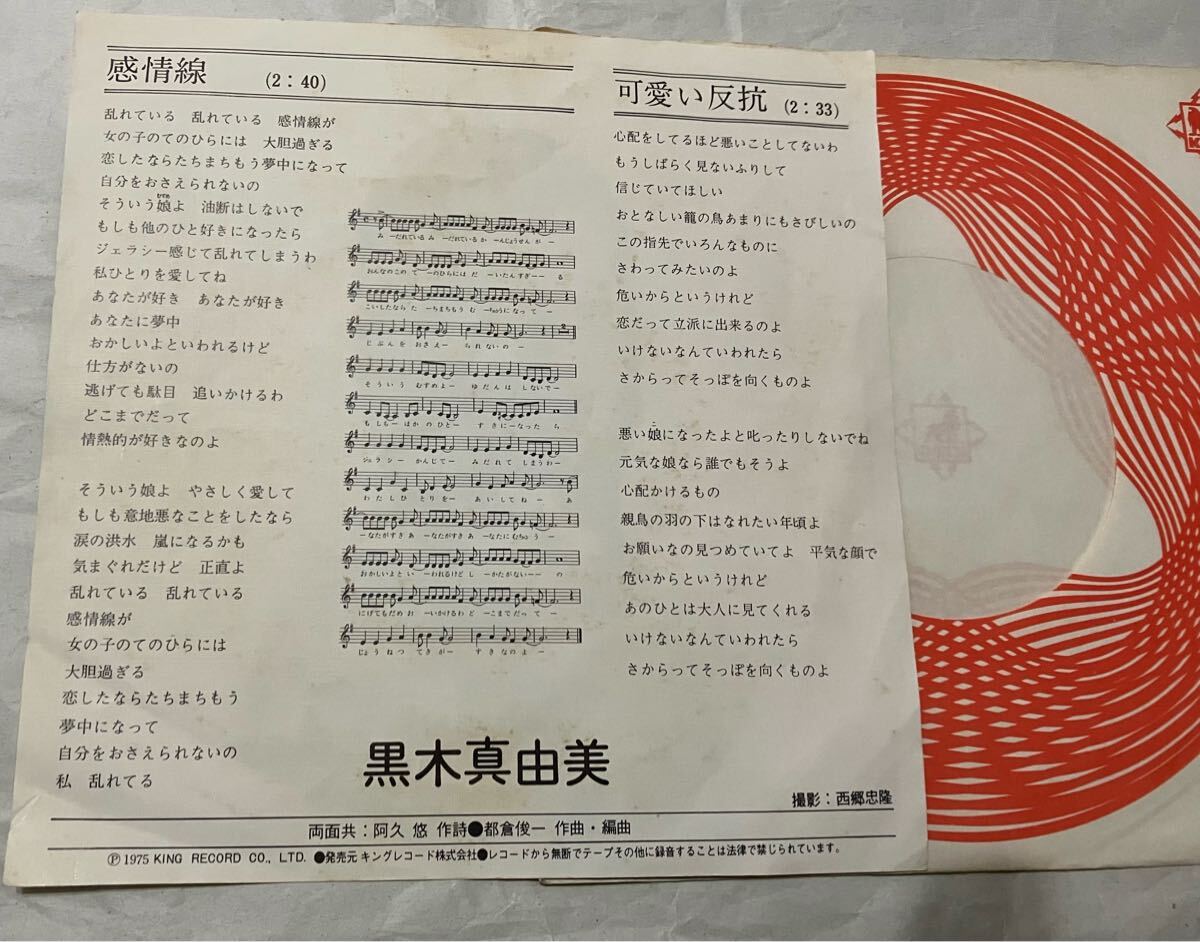 感情線 (2:40)
乱れている 乱れている 感情線が
女の子のてのひらには 大胆過ぎる
恋したならたちまちもう夢中になって
自分をおさえられないの
そういう娘よ 油断はしないで
もしも他のひと好きになったら
ジェラシー感じて乱れてしまうわ
私ひとりを愛してね
あなたが好き あなたが好き
あなたに夢中
おかしいよといわれるけど
仕方がないの
逃げても駄目 追いかけるわ
どこまでだって
情熱的が好きなのよ
そういう娘よ やさしく愛して
もしも意地悪なことをしたなら
涙の洪水 嵐になるかも
気まぐれだけど 正直よ
乱れている 乱れている
感情線が
女の子のてのひらには
大胆過ぎる
恋したならたちまちもう
夢中になって
自分をおさえられないの
私 乱れてる
みーだれているみーだれているかーんじょうせんがー
おんなのこのてーのひらにはだーいたんすぎーーる
こいしたならたーちまちもうむーちゅうになってー
じぶんをおさえーられないのー
そういうむすめよーゆだんはしないでー
もしもーほかのひとーすきにーなったら
ジェラシーかんじてーみだれてしまうわー
わたしひとりをーあいしてねーあ
ーなたがすきあーなたがすきあーなたにむちゅうー
おかしいよといーわれるけどしーかたがないーーの
にげてもだめおーいかけるわどーこまでだってー
じょうねつてきがーすきなのよー
可愛い反抗 (2:33)
心配をしてるほど悪いことしてないわ
もうしばらく見ないふりして
信じていてほしい
おとなしい籠の鳥あまりにもさびしいの
この指先でいろんなものに
さわってみたいのよ
危いからというけれど
恋だって立派に出来るのよ
いけないなんていわれたら
さからってそっぽを向くものよ
悪い娘になったよと叱ったりしないでね
元気な娘なら誰でもそうよ
心配かけるもの
親鳥の羽の下はなれたい年頃よ
お願いなの見つめていてよ 平気な顔で
危いからというけれど
あのひとは大人に見てくれる
いけないなんていわれたら
さからってそっぽを向くものよ
黒木真由美
撮影：西郷忠隆
両面共：阿久 悠 作詩●都倉俊一 作曲・編曲
Ⓟ1975 KING RECORD CO., LTD. ●発売元 キングレコード株式会社●レコードから無断でテープその他に録音することは法律で禁じられています。